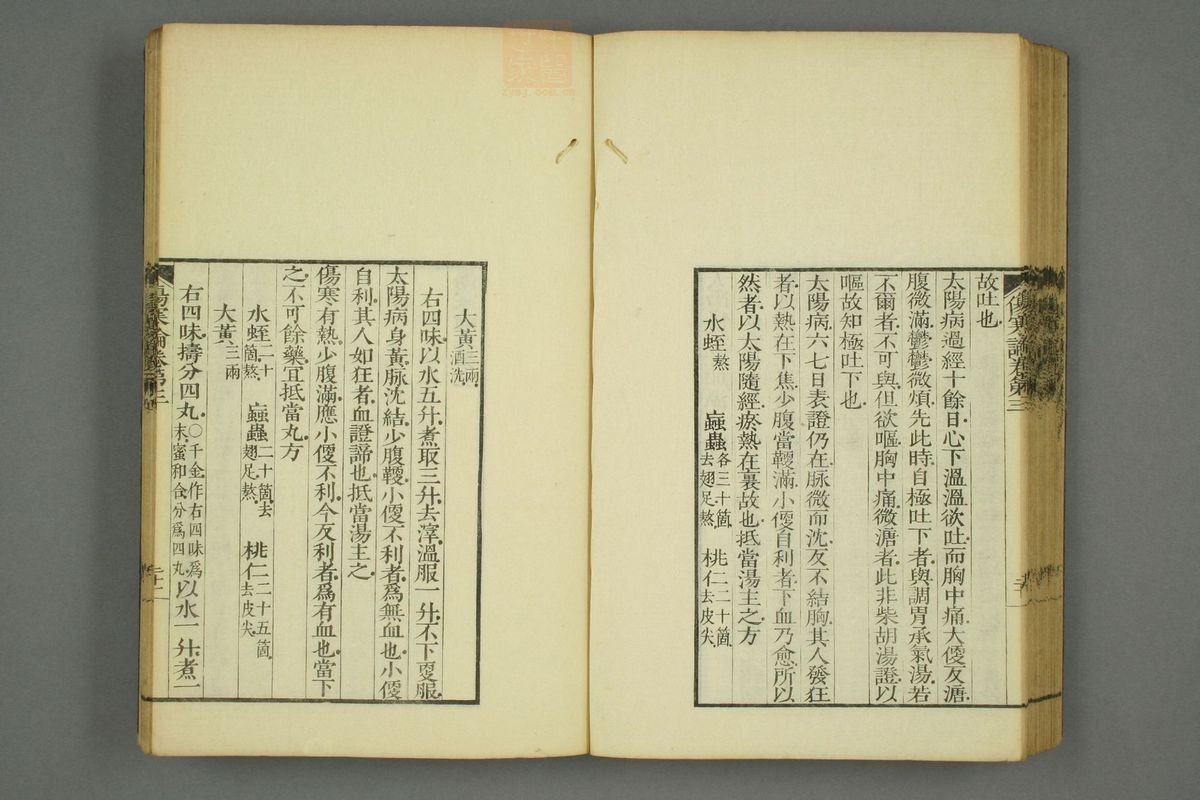 故吐也
太陽病過經十餘日心下溫溫欲吐而胸中痛大便反溏
腹微滿鬱鬱微煩先此時自極吐下者與調胃承氣湯若
不爾者不可與但欲嘔胸中痛微溏者此非柴胡湯證以
嘔故知極吐下也
太陽病六七日表證仍在脉微而沈反不結胸其人發狂
者以熱在下焦少腹當鞕滿小便自利者下血乃愈所以
然者以太陽隨經瘀熱在裏故也抵當湯主之方
水蛭熬 蝱蟲各三十箇去翅足熬 桃仁二十箇去皮尖
大黃三兩酒洗
右四味以水五升煮取三升去滓溫服一升不下更服
太陽病身黃脉沈結少腹鞕小便不利者爲無血也小便
自利其人如狂者血證諦也抵當湯主之
傷寒有熱少腹滿應小便不利今反利者爲有血也當下
之不可餘藥宜抵當丸方
水蛭二十箇熬 蝱蟲二十箇去翅足熬 桃仁二十五箇去皮尖
大黃三兩
右四味擣分四丸○千金作右四味爲末蜜和合分爲四丸以水一升煮一
傷寒論卷第三
zysj.com.cn